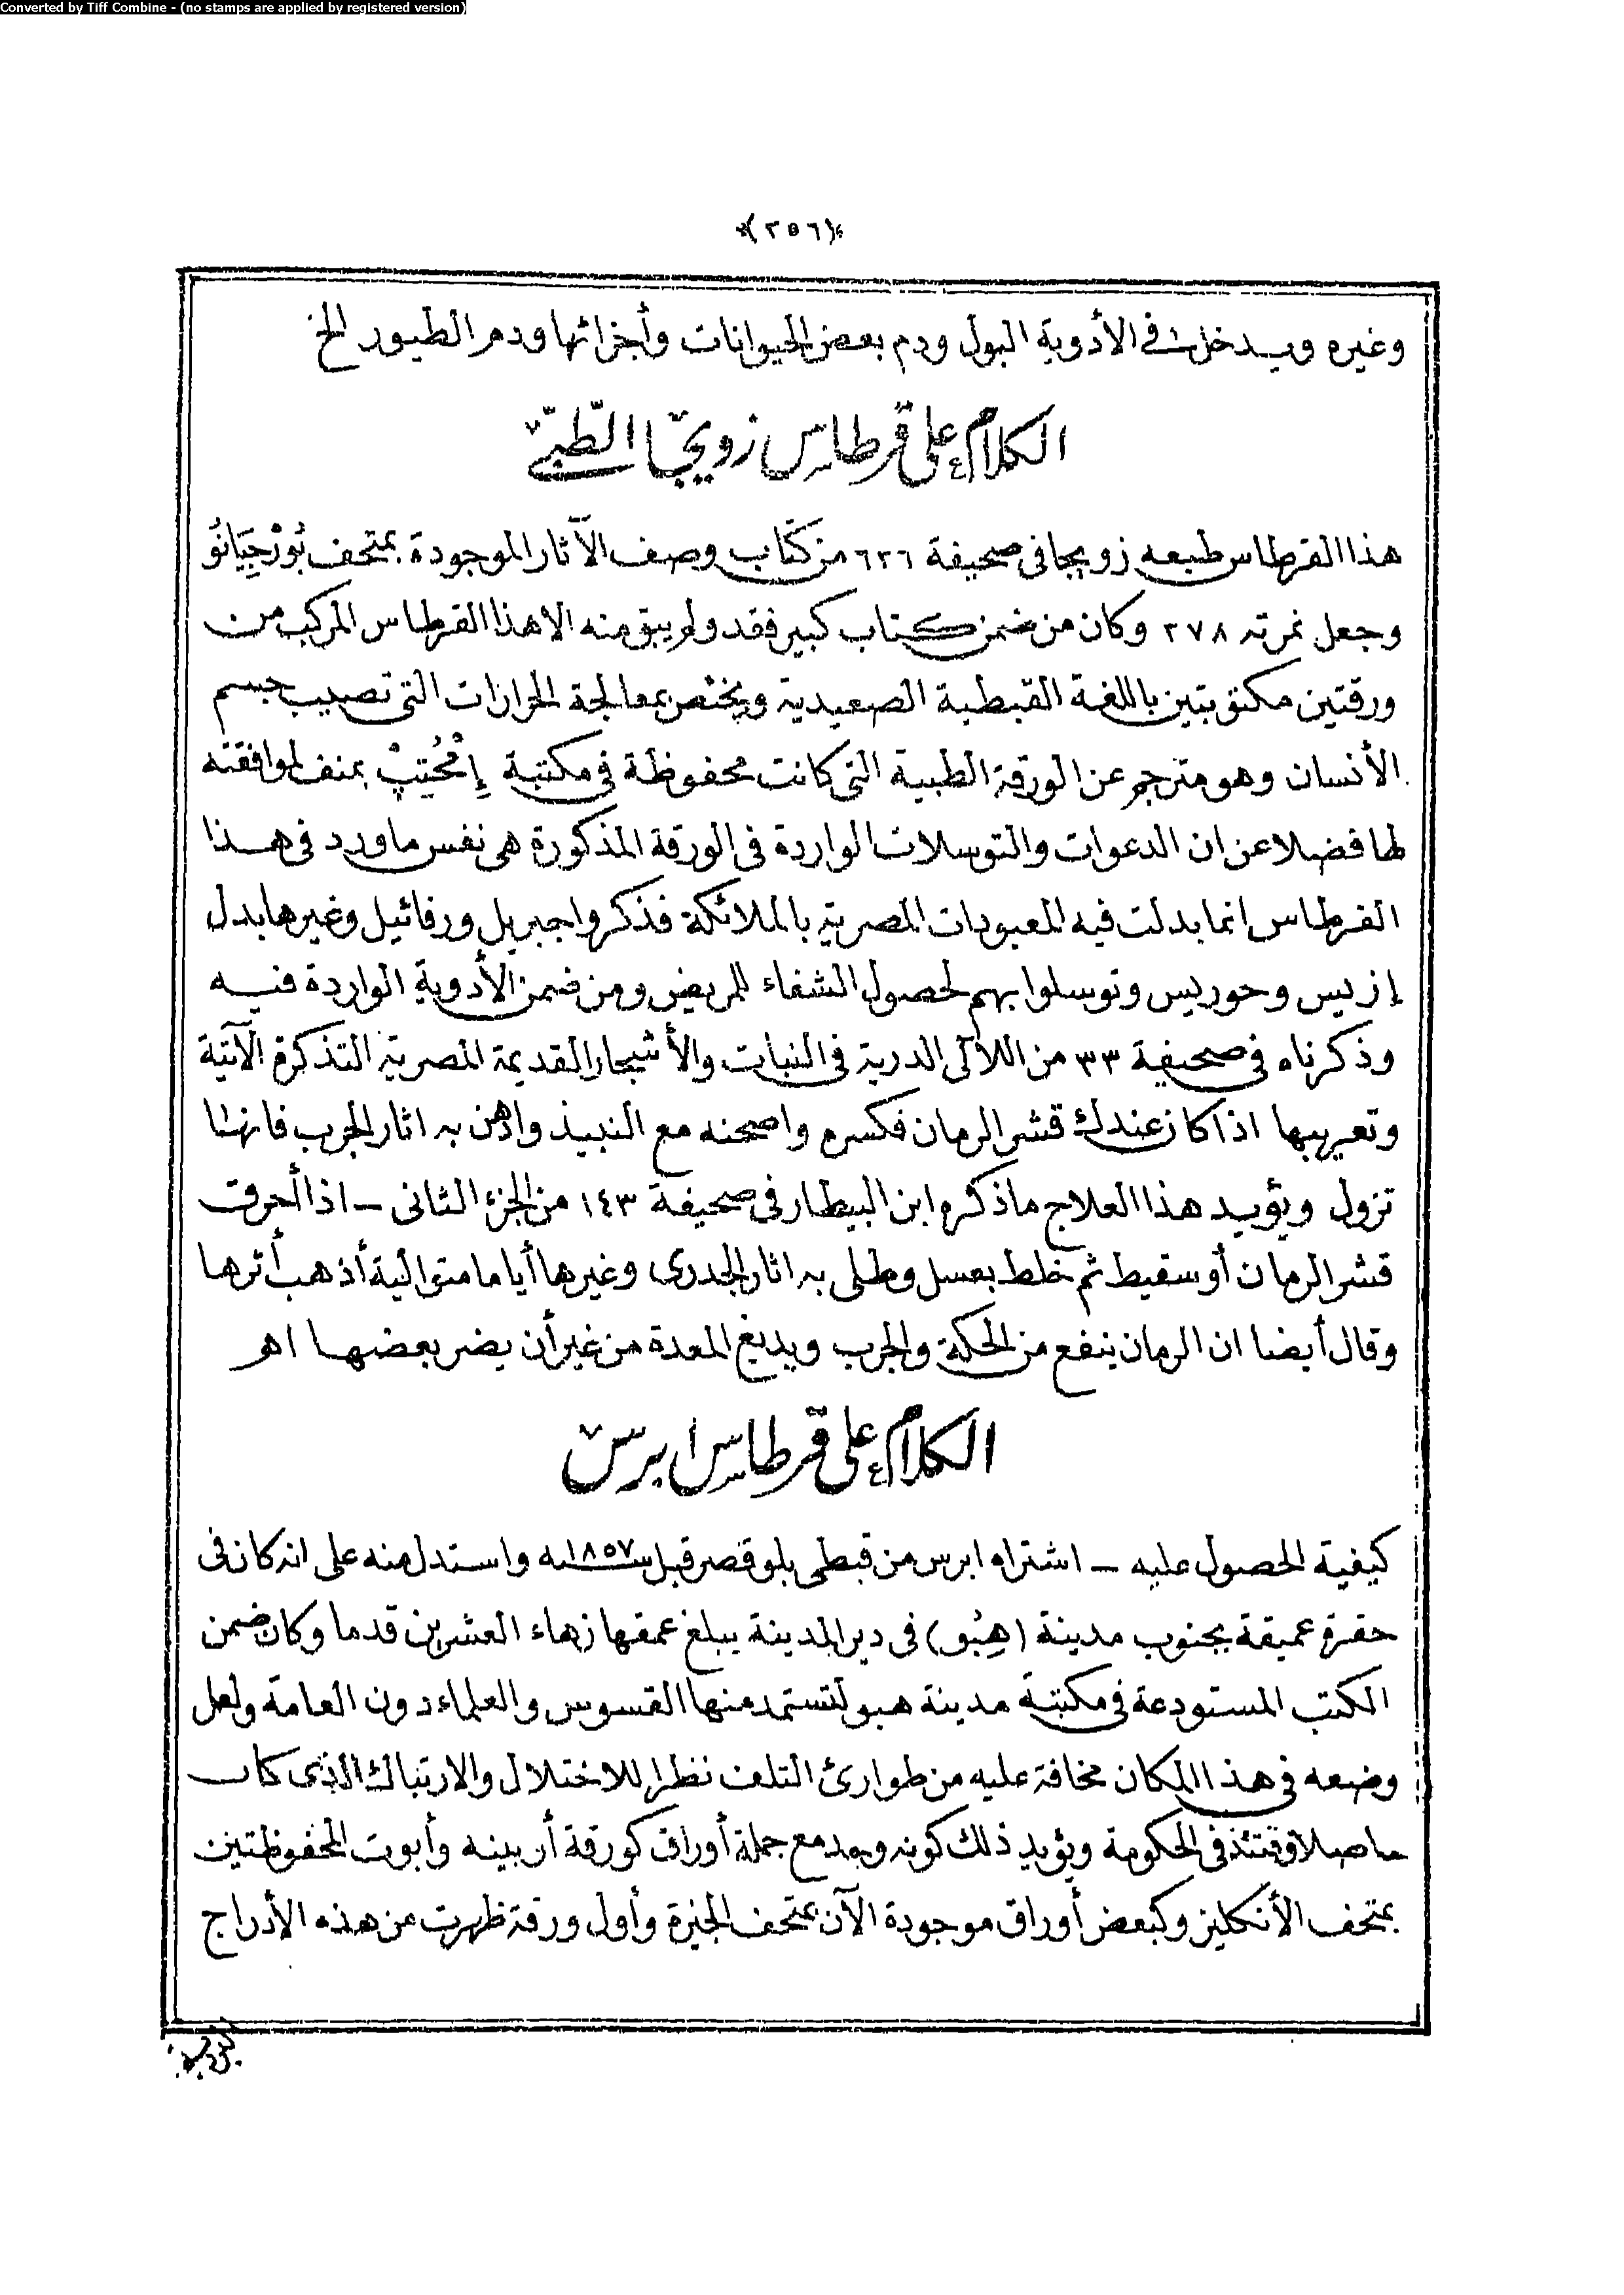 Converted by Tiff Combine - (no stamps are applied by registered version)
(٢٥٦)
وغيره ويدخل في الأدوية البول ودم بعض الحيوانات وأجزائها ودم الطيور الخ
الكلام على قرطاس زويجا الطّبّي
هذا القرطاس طبعه زويجا في صحيفة ٦٢٦ من كتاب وصف الآثار الموجودة بمتحف بُورْجِيَانُو
وجعل نمرته ٢٧٨ وكان من ضمن كتاب كبير فقد ولم يبق منه الا هذا القرطاس المركب من
ورقتين مكتوبتين باللغة القبطية الصعيدية ويختص بمعالجة الحزازات التي تصيب جسم
الأنسان وهو مترجم عن الورقة الطبية التي كانت محفوظة في مكتبة إمْحُتِپْ بمنف لموافقته
لها فضلا عن ان الدعوات والتوسلات الواردة في الورقة المذكورة هي نفس ما ورد في هذا
القرطاس انما بدلت فيه المعبودات المصرية بالملائكة فذكروا جبريل ورفائيل وغيرها بدل
إزيس وحوريس وتوسلوا بهم لحصول الشفاء للمريض ومن ضمن الأدوية الواردة فيه
وذكرناه في صحيفة ٣٣ من اللآلئ الدرية في النبات والأشجار القديمة المصرية التذكرة الآتية
وتعريبها اذا كان عندك قشر الرمان فكسره واصحنه مع النبيذ وادهن به اثار الجرب فانها
تزول ويؤيد هذا العلاج ما ذكره ابن البيطار في صحيفة ١٤٣ من الجزء الثاني – اذا أحرقت
قشر الرمان أو سقيط ثم خلط بعسل وطلى به اثار الجدرى وغيرها أياما متوالية أذهب أثرها
وقال أيضا ان الرمان ينفع من الحكة والجرب ويدبغ المعدة من غير أن يضر بعضها اهـ
الكلام على قرطاس ابرس
كيفية الحصول عليه – اشتراه ابرس من قبطى بلوقصر قبل سنة ١٨٥٧ واستدل منه على انه كان في
حفرة عميقة بجنوب مدينة (هِبُو) في دير المدينة يبلغ عمقها زهاء العشرين قدما وكان ضمن
الكتب المستودعة في مكتبة مدينة هبو لتستمد منها القسوس والعلماء دون العامة ولعل
وضعه في هذا المكان مخافة عليه من طوارئ التلف نظرا للاختلال والارتباك الذى كان
حاصلا وقتئذ في الحكومة ويؤيد ذلك كونه وجد مع جملة أوراق كورقة أربينه وأبوت المحفوظتين
بمتحف الأنكليز وكبعض أوراق موجودة الآن بمتحف الجيزة وأول ورقة ظهرت من هذه الأدراج